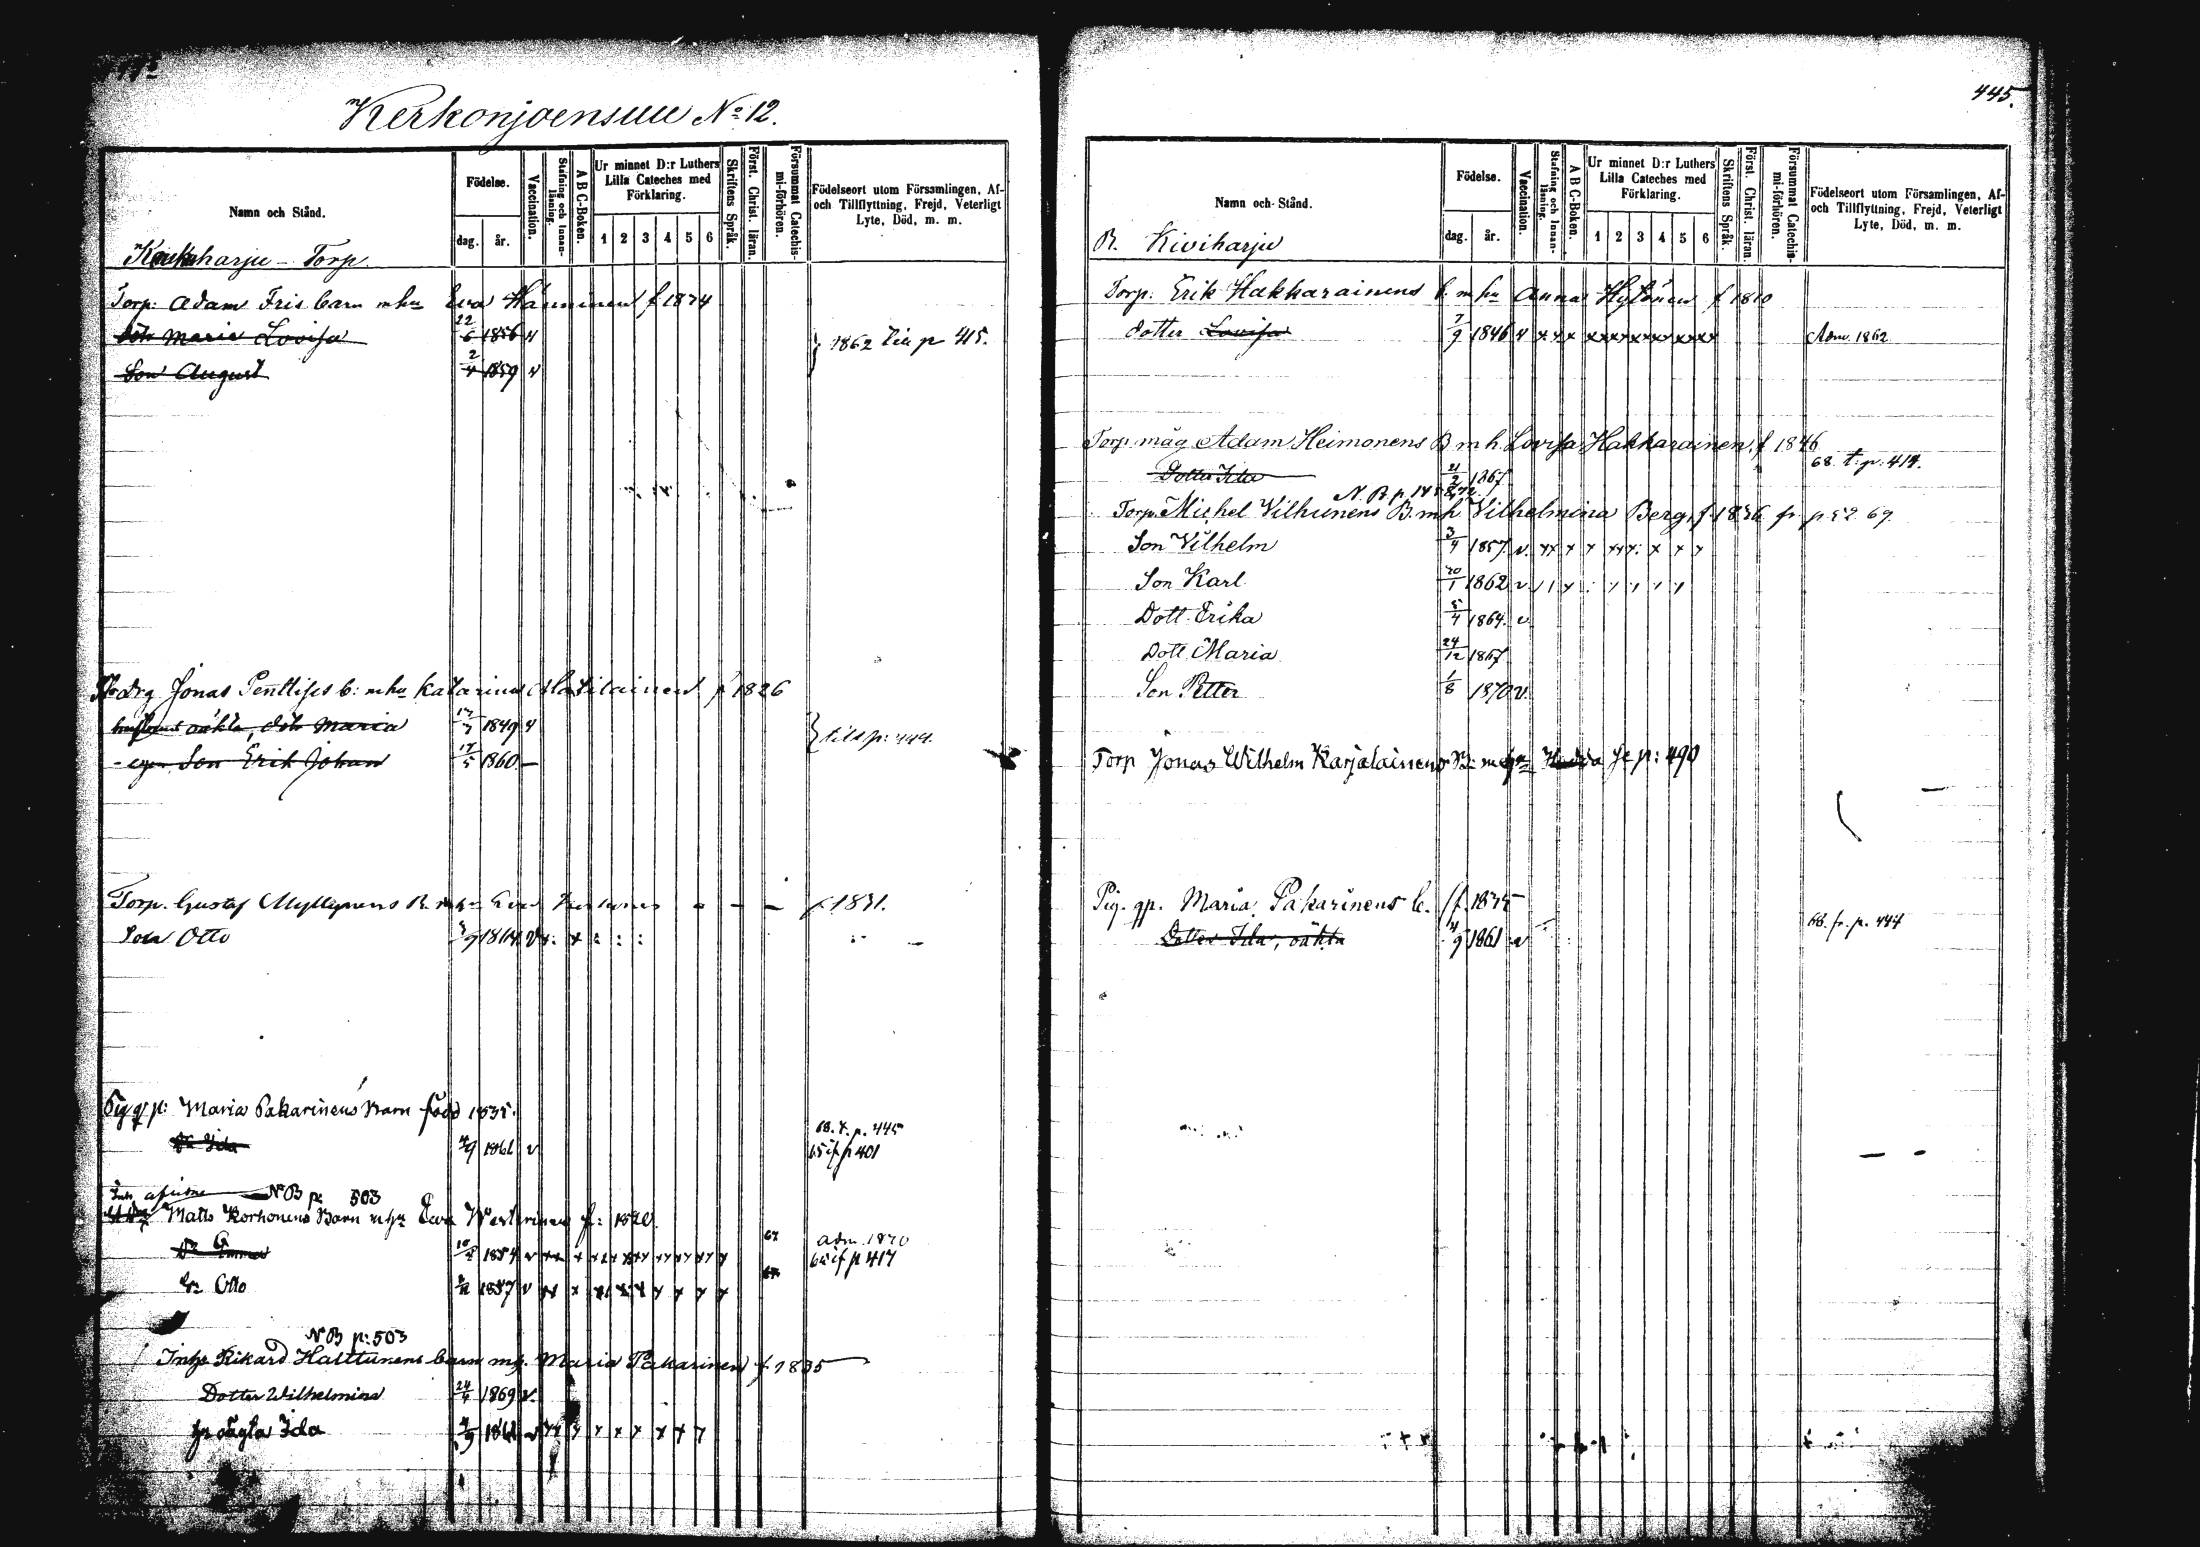 Kerkonjoensuu No 12.
Namn och Stånd.
Födelse.
dag. år.
Vaccination.
Stafning och Innan-läsning.
A B C-Boken.
Ur minnet D:r Luthers Lilla Cateches med Förklaring.
1 2 3 4 5 6
Skriftens Språk.
Först. Christ. läran.
Försummat Catechis-mi-förhören.
Födelseort utom Församlingen, Af- och Tillflyttning, Frejd, Veterligt Lyte, Död, m. m.
harju - Torp.
Torp: Adam Fris barn m hu Eva Hänninen f 1834
Dotr Maria Lovisa 22/6 1856 v } 1862 till p 415.
Son August 2/4 1859 v
Jonas Penttises b: m hu Katarina f 1826
oäkta, dotr Maria 1849 v } till p: 444.
egen Son Erik Johan 17/5 1860 —
Torp. Gustaf Myllynens B. m hu Eva f 1831.
Son Otto
Pig gp: Maria Pakarinens Barn född 1835.
Dr Ida 4/9 1861 v 68. t. p. 445
65 if p 401
NB p. 503
Matts Korhonens Barn m hu Eva f: 1820.
Dr Emma 1854 v x x x x x x x x 67 adm. 1870
65 if p 417
Sn Otto 1857 v x x x x x x x x
NB p: 503
Inhs Rikard Halttunens barn mh. Maria Pakarinen f. 1835
Dotter Wilhelmina 24/4 1869 v.
hr oägta Ida 4/9 1861 v x x x x x x x x
445.
Namn och Stånd.
Födelse.
dag. år.
Vaccination.
Stafning och Innan-läsning.
A B C-Boken.
Ur minnet D:r Luthers Lilla Cateches med Förklaring.
1 2 3 4 5 6
Skriftens Språk.
Först. Christ. läran.
Försummat Catechis-mi-förhören.
Födelseort utom Församlingen, Af- och Tillflyttning, Frejd, Veterligt Lyte, Död, m. m.
R. Kiviharju
Torp: Erik Hakkarainens b. m hu Anna Hytönen f 1810
dotter Lovisa 7/9 1846 v x x x x x x x x x Adm. 1862
Torp. måg Adam Heimonens B m h. Lovisa Hakkarainen, f 1846
Dotter Ida 21/2 1867 68. t. p. 414.
N. B. p.
Torp. Michel Vilhunens B. m h Vilhelmina Berg, f. 1836 fr p. 52 69.
Son Vilhelm 3/4 1857 v. x x x x x x x x x
Son Karl 20/1 1862 v
Dott. Erika 5/4 1864. v
Dott. Maria 24/12 1867
Son Petter 1/8 1870 v.
Torp Jonas Wilhelm Karjalainens B: m hu Hedda se p: 490
Pig. gp. Maria Pakarinens b. f. 1835
Dotter Ida, oäkta 4/9 1861 v 68. fr. p. 444